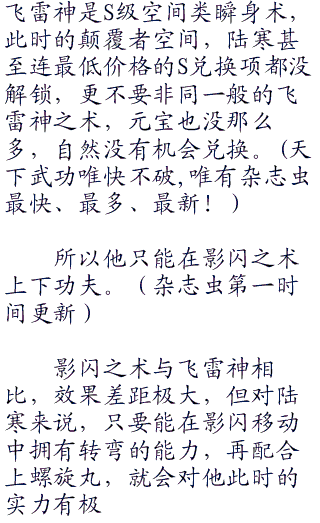 飞雷神是S级空间类瞬身术，
此时的颠覆者空间，陆寒甚
至连最低价格的S兑换项都没
解锁，更不要非同一般的飞
雷神之术，元宝也没那么
多，自然没有机会兑换。(天
下武功唯快不破,唯有杂志虫
最快、最多、最新！)
所以他只能在影闪之术
上下功夫。（杂志虫第一时
间更新）
影闪之术与飞雷神相
比，效果差距极大，但对陆
寒来说，只要能在影闪移动
中拥有转弯的能力，再配合
上螺旋丸，就会对他此时的
实力有极